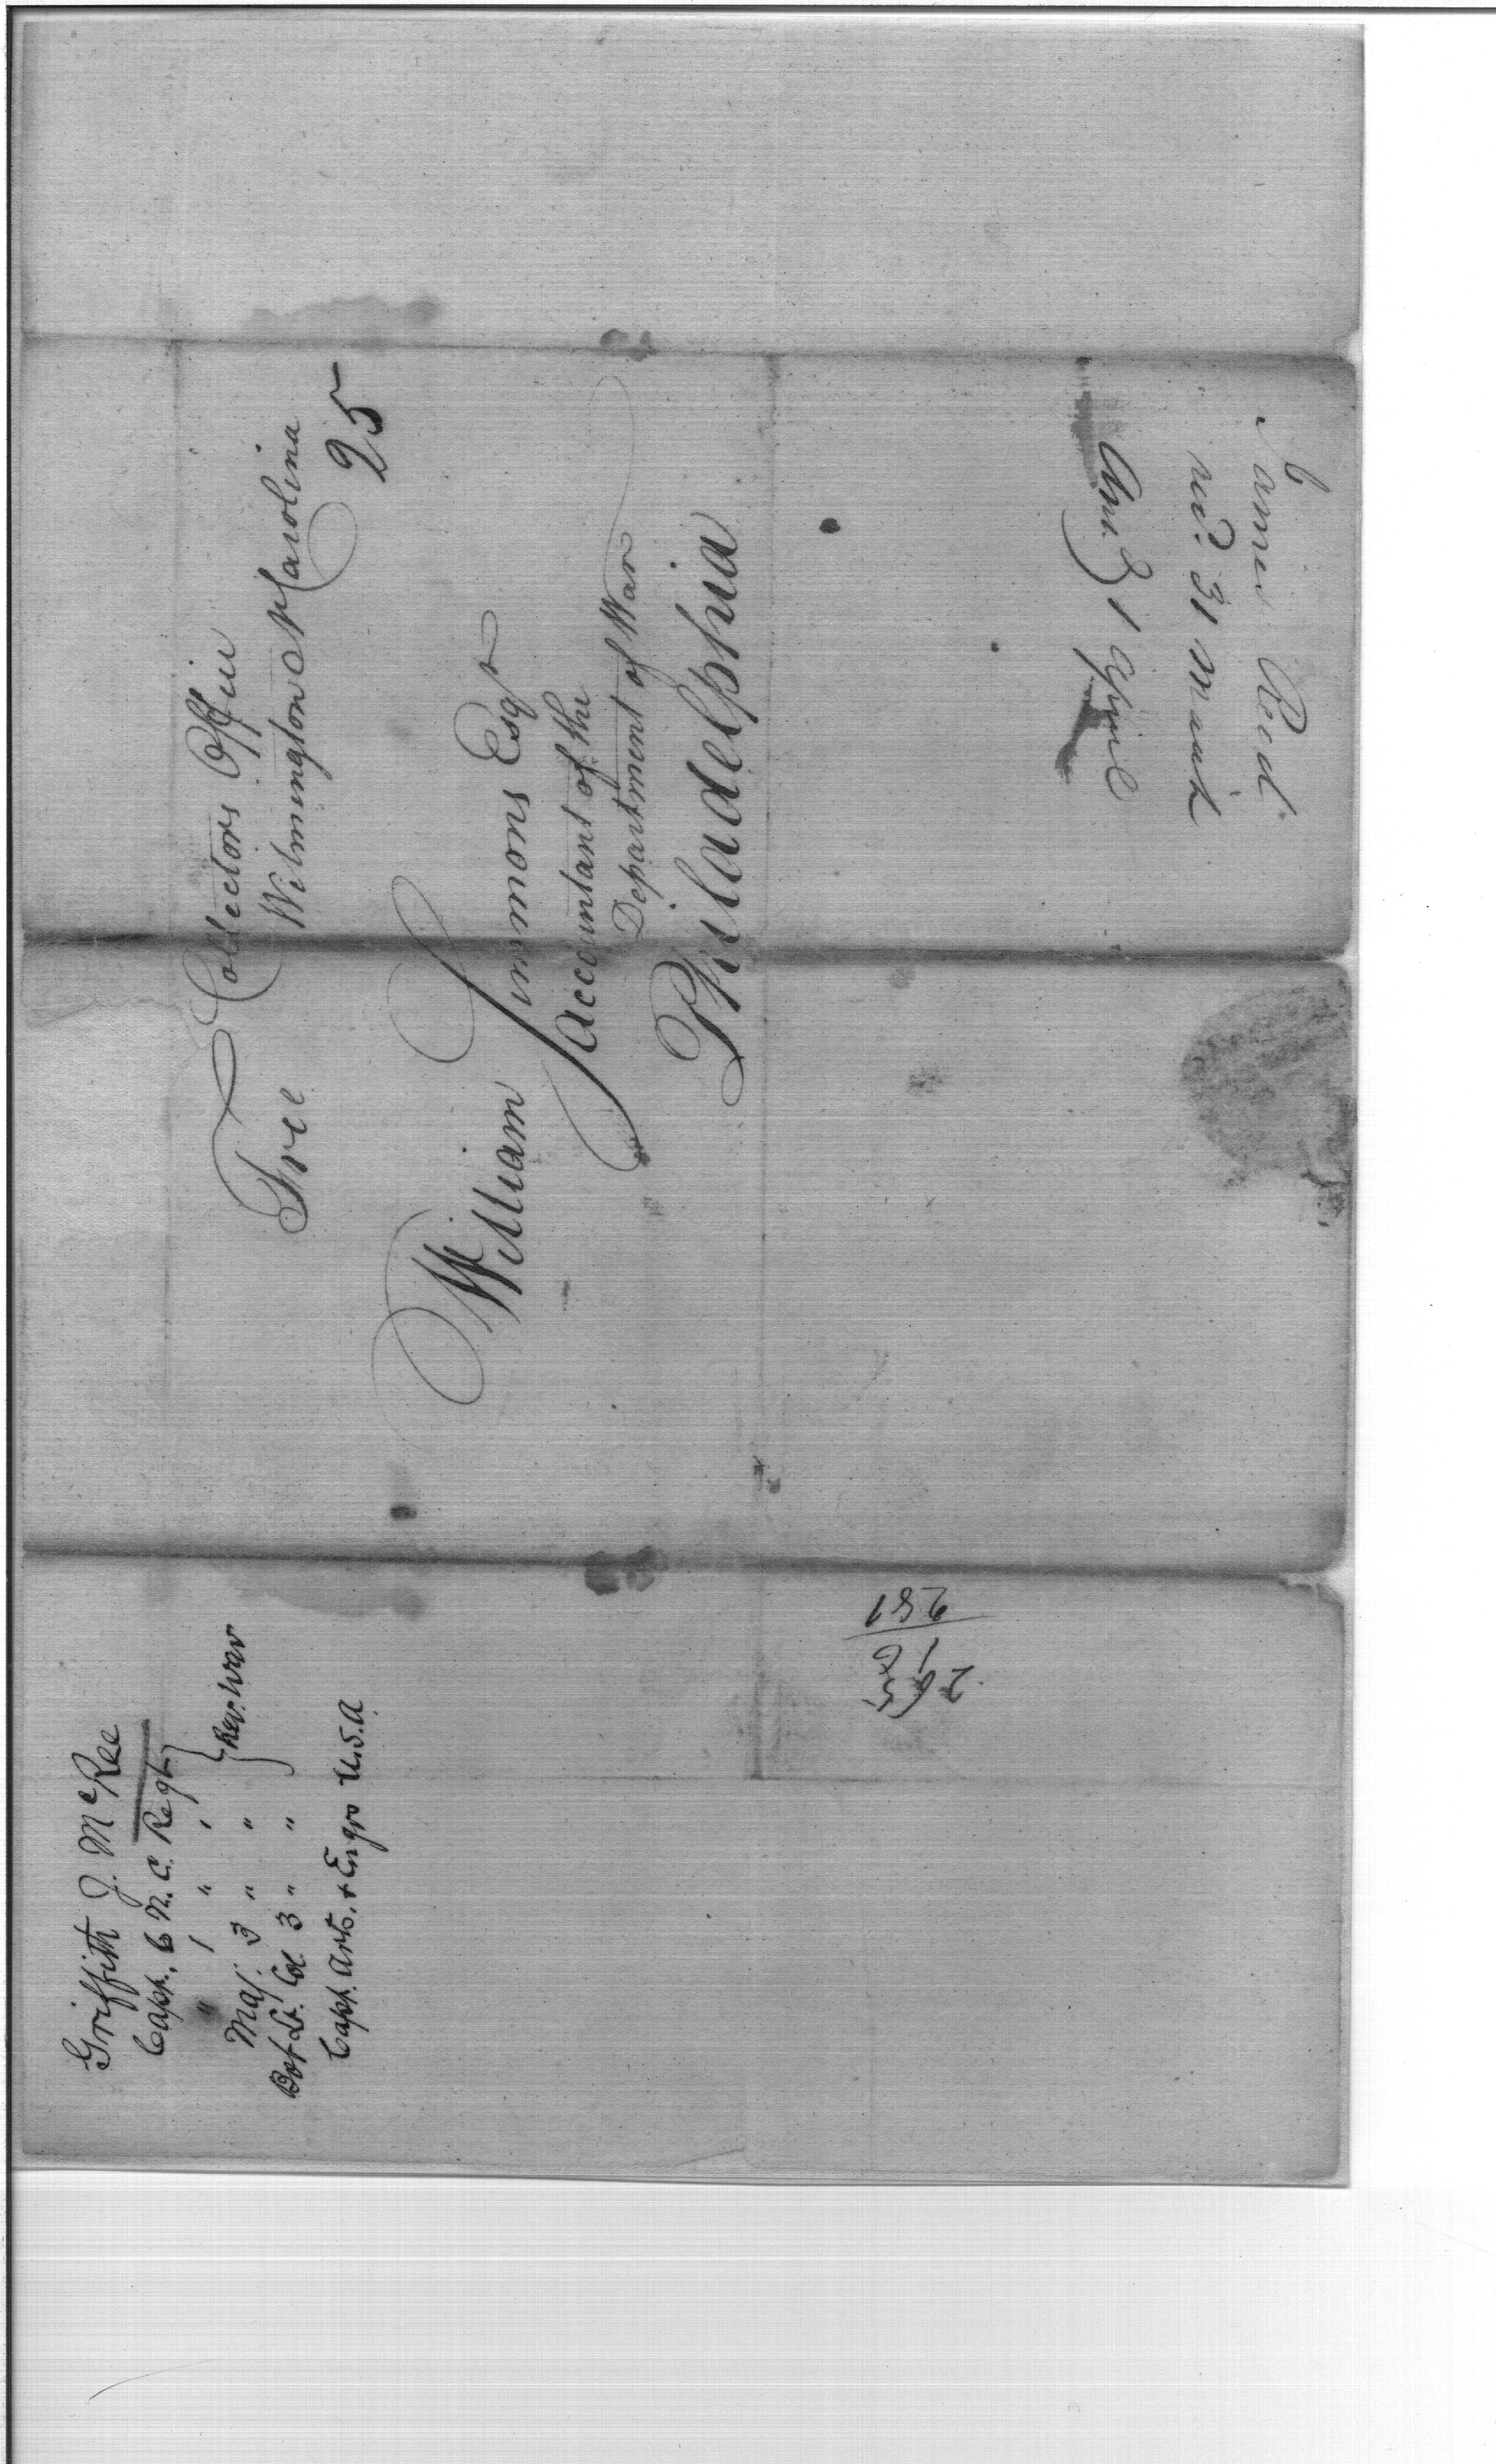 Free
Collectors Office
Wilmington N Carolina
25
William Simmons Esqr
Accountant of the
Department of War
Philadelphia
James Read
recd. 31 March
Ansd. 1 April
Griffith J. McRee
Capt. 6 N. C. Regt }
" 1 " , }
Maj. 3 " " } Rev. War
Bvt Lt. Col. 3 " " }
Capt. Arts. & Engrs U.S.A